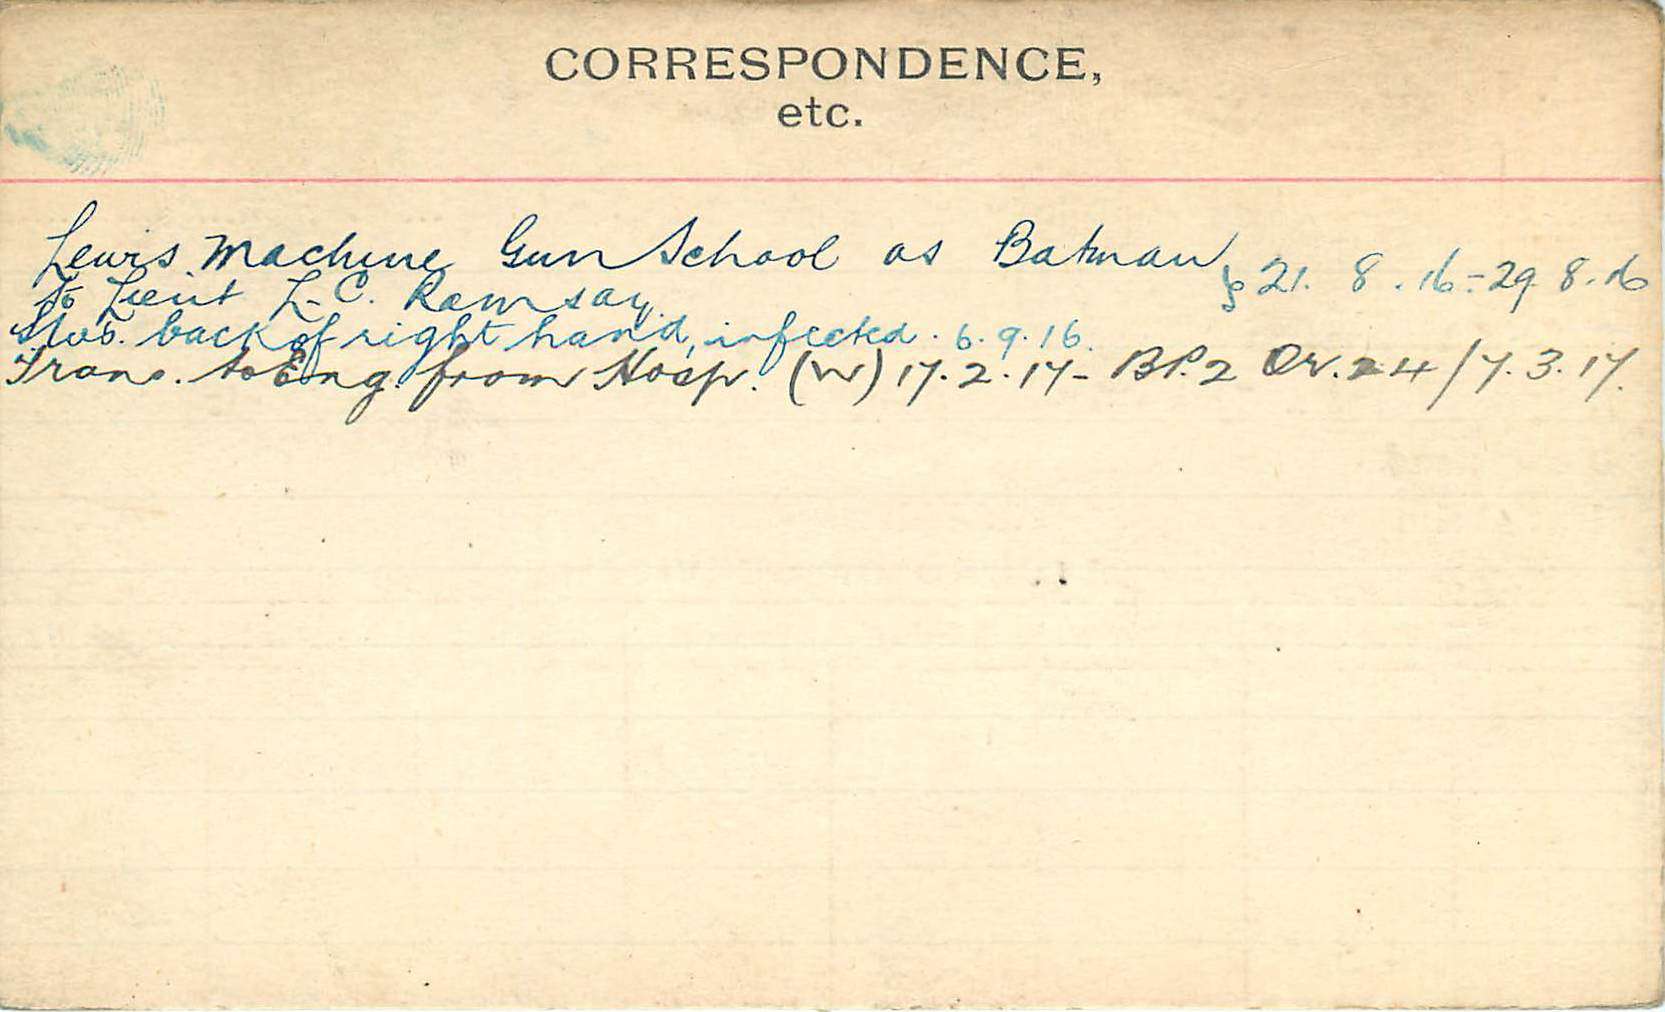 CORRESPONDENCE,
etc.
Lewis Machine Gun School as Batman } 21. 8. 16 - 29. 8. 16
to Lieut L. C. Ramsay.
back of right hand, infected. 6. 9. 16.
Trans. to Eng. from Hosp. (W) 17. 2. 17 - BP.2 Or. 24/7. 3. 17.